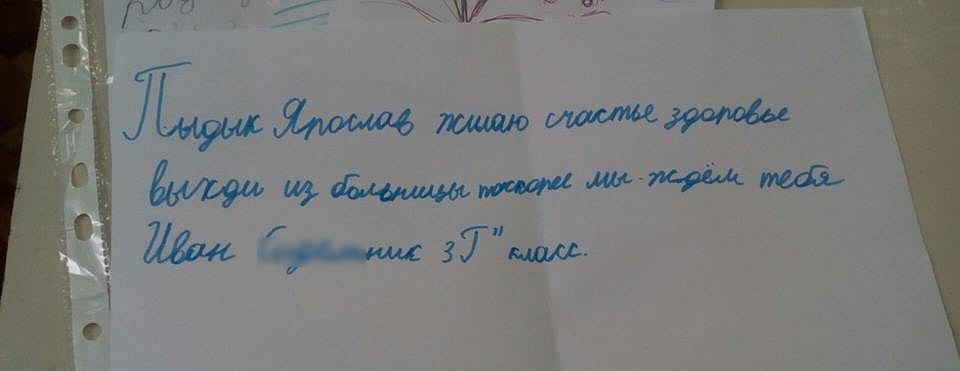 Пыдык Ярослав жшаю счастье здоровье
выходи из больницы поскорее мы ждём тебя
Иван ник 3 Г" класс.